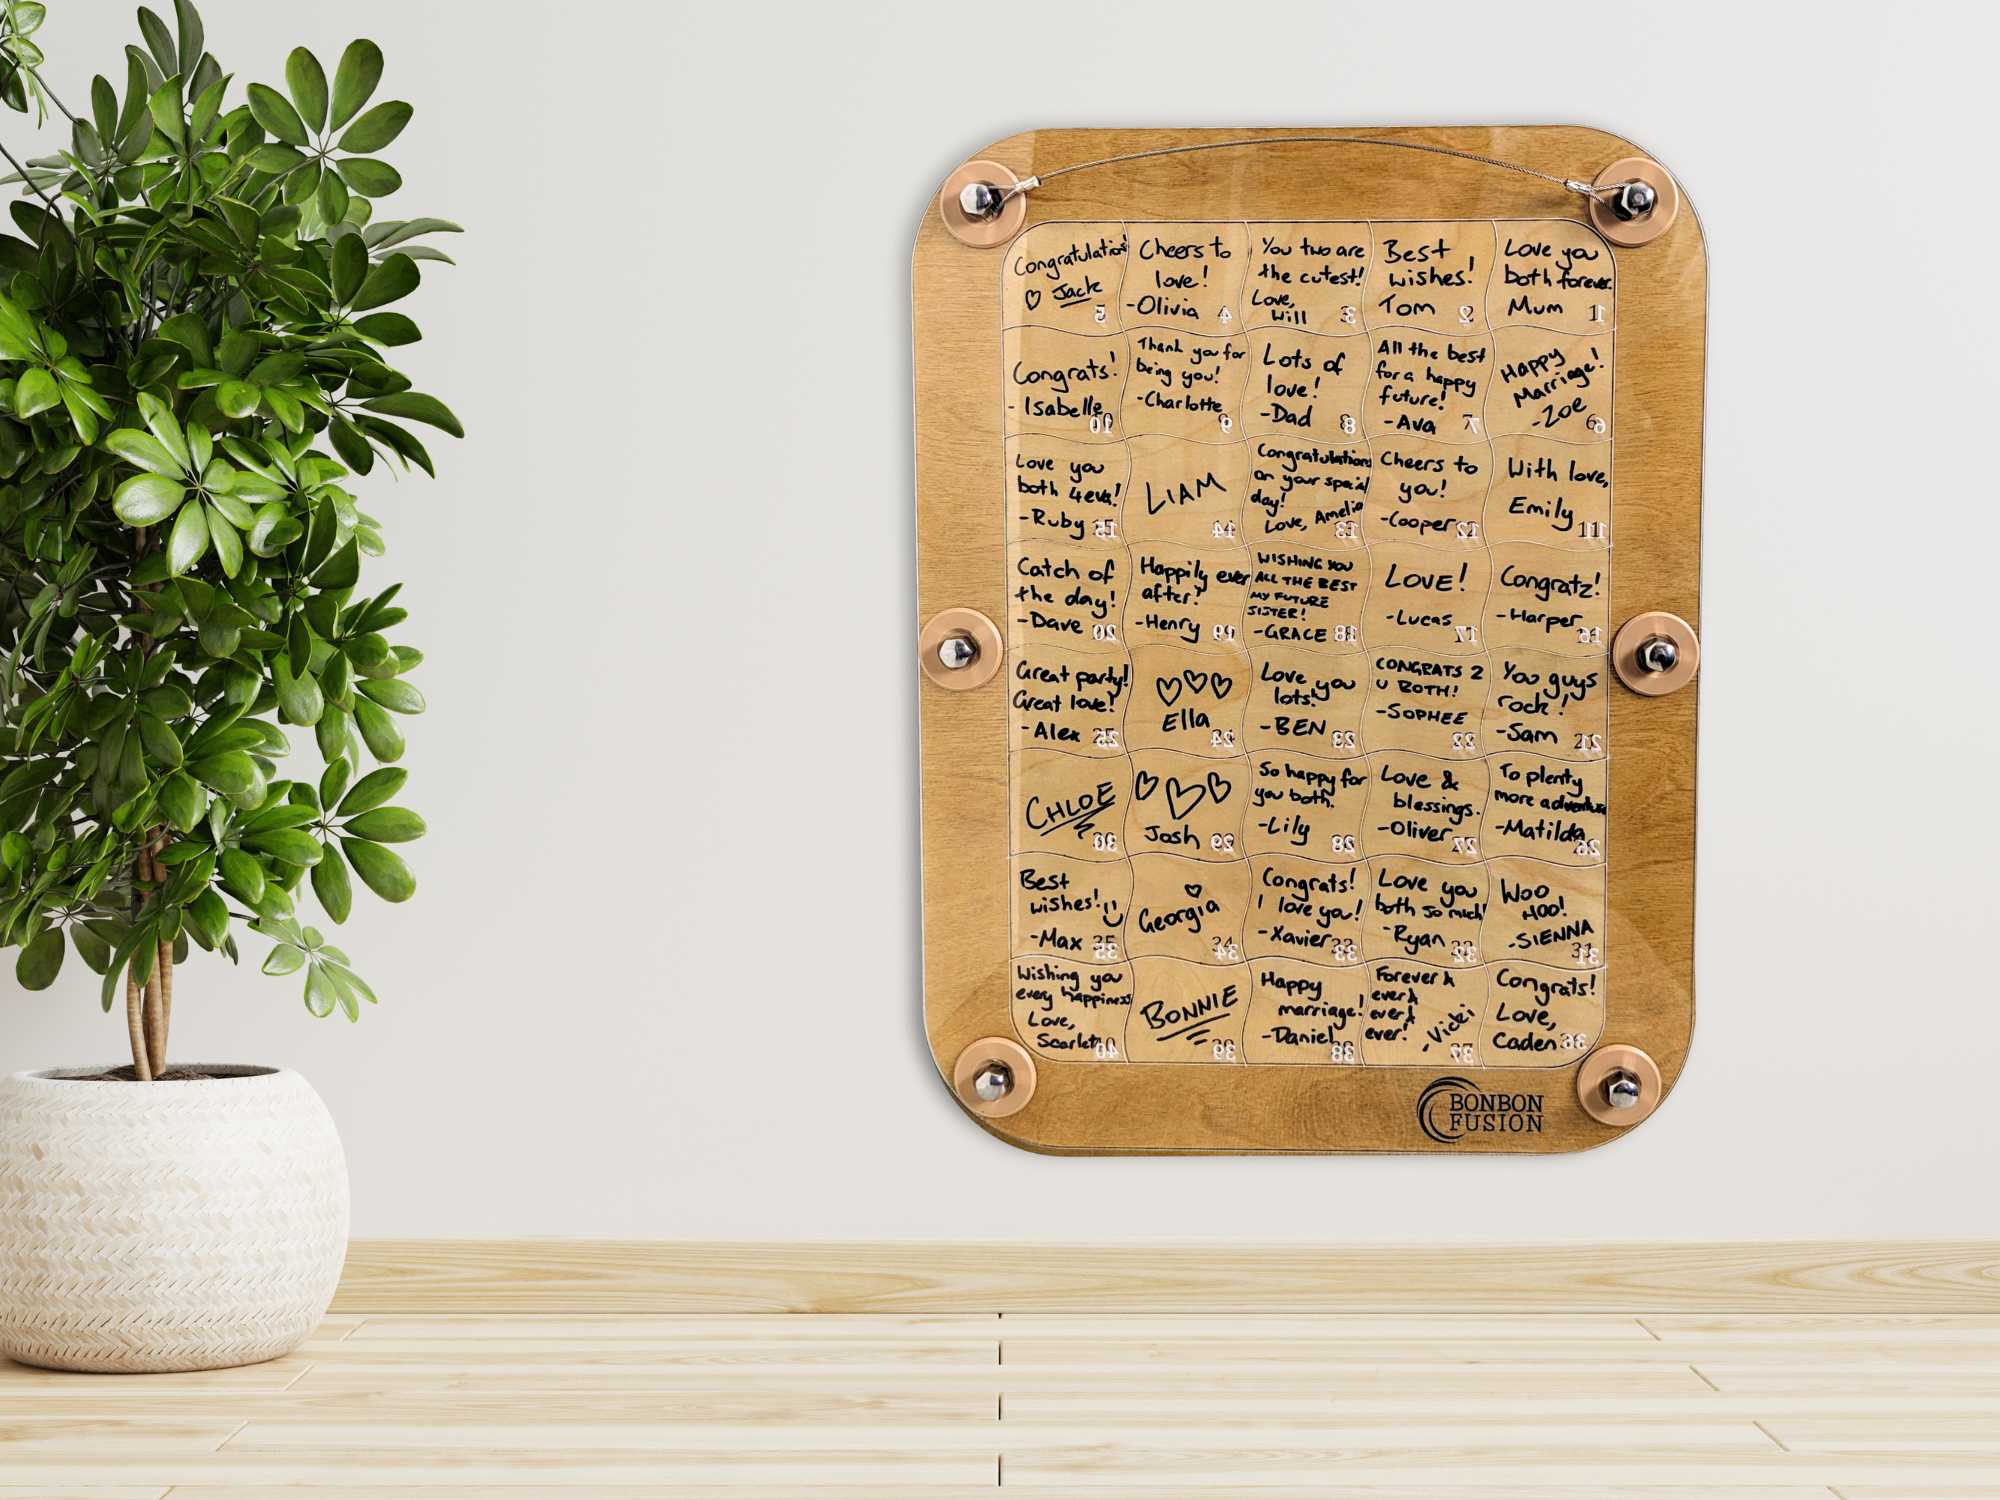 Congratulations!
♡ Jack
5
Cheers to
love!
-Olivia 4
You two are
the cutest!
Love,
Will 3
Best
wishes!
Tom 2
Love you
both forever.
Mum 1
Congrats!
- Isabelle
10
Thank you for
being you!
-Charlotte
9
Lots of
love!
-Dad 8
All the best
for a happy
future!
-Ava 7
Happy
Marriage!
-Zoe 6
Love you
both 4eva!
-Ruby 15
LIAM
14
Congratulations
on your special
day!
Love, Amelia
13
Cheers to
you!
-Cooper 12
With love,
Emily 11
Catch of
the day!
-Dave 20
Happily ever
after!
-Henry 19
WISHING YOU
ALL THE BEST
MY FUTURE
SISTER!
-GRACE 18
LOVE!
-Lucas 17
Congratz!
-Harper 16
Great party!
Great love!
-Alex 25
♡♡♡
Ella 24
Love you
lots!
-BEN 23
CONGRATS 2
U BOTH!
-SOPHEE
22
You guys
rock!
-Sam 21
CHLOE
30
♡♡♡
Josh 29
So happy for
you both.
-Lily 28
Love &
blessings.
-Oliver 27
To plenty
more adventures
-Matilda
26
Best
wishes! :)
-Max 35
♡
Georgia
34
Congrats!
I love you!
-Xavier 33
Love you
both so much!
-Ryan 32
WOO
HOO!
-SIENNA
31
Wishing you
every happiness
Love,
Scarlet 40
BONNIE
39
Happy
marriage!
-Daniel
38
Forever &
ever &
ever &
ever! -Vicki
37
Congrats!
Love,
Caden 36
BONBON
FUSION